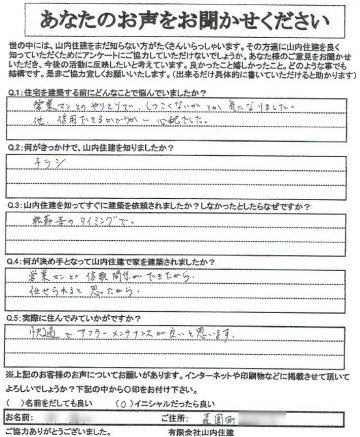 あなたのお声をお聞かせください
世の中には、山内住建をまだ知らない方がたくさんいらっしゃいます。その方達に山内住建を良く
知っていただくためにアンケートにご協力していただけないでしょうか。あなた様のご意見をお聞かせ
いただき、今後の活動に反映したいと考えています。良かったこと嬉しかったこと。どのような事でも
結構です。是非ご協力宜しくお願いいたします。(出来るだけ具体的に書いていただけると助かります)
Q.1:住宅を建築する前にどんなことで悩んでいましたか?
営業マンとのやりとりで、しつこくないか とか 気になりました。
他、信用できるかどうか… 心配でした。
Q.2:何がきっかけで、山内住建を知りましたか?
チラシ
Q.3:山内住建を知ってすぐに建築を依頼されましたか?しなかったとしたらなぜですか?
転勤等のタイミングで。
Q.4:何が決め手となって山内住建で家を建築されましたか?
営業マンとの信頼関係ができたから。
任せられると思ったから。
Q.5:実際に住んでみていかがですか?
快適でアフターメンテナンスが良いと思います。
※上記のお客様のお声についてお願いがあります。インターネットや印刷物などに掲載させて頂いて
よろしいでしょうか?下記の中から〇印をお付け下さい。
( )名前をだしても良い (〇)イニシャルだったら良い
お名前: ご住所:
ご協力ありがとうございました。 有限会社山内住建